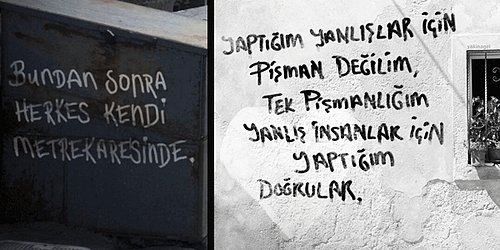 BUNDAN SONRA
HERKES KENDİ
METREKARESİNDE.
YAPTIĞIM YANLIŞLAR İÇİN
PİŞMAN DEĞİLİM,
TEK PİŞMANLIĞIM
YANLIŞ İNSANLAR İÇİN
YAPTIĞIM
DOĞRULAR.